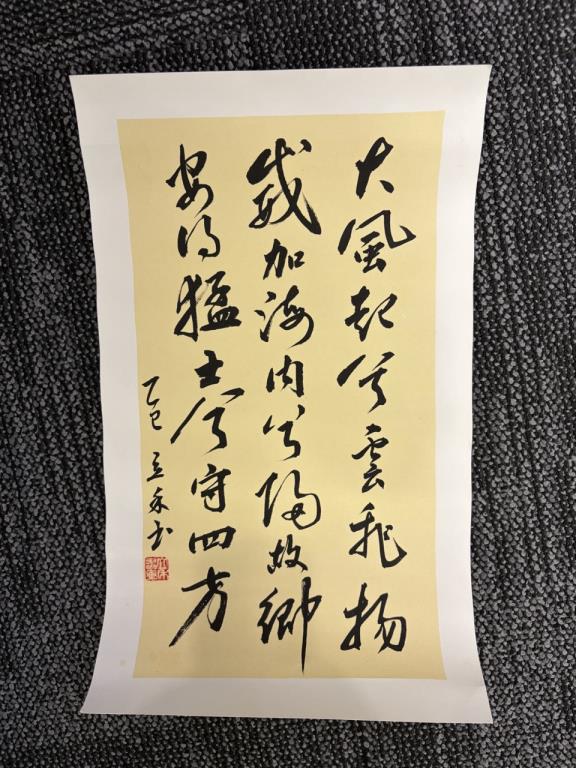 大風起兮雲飛揚
威加海内兮歸故鄉
安得猛士兮守四方
乙巳 立秋书